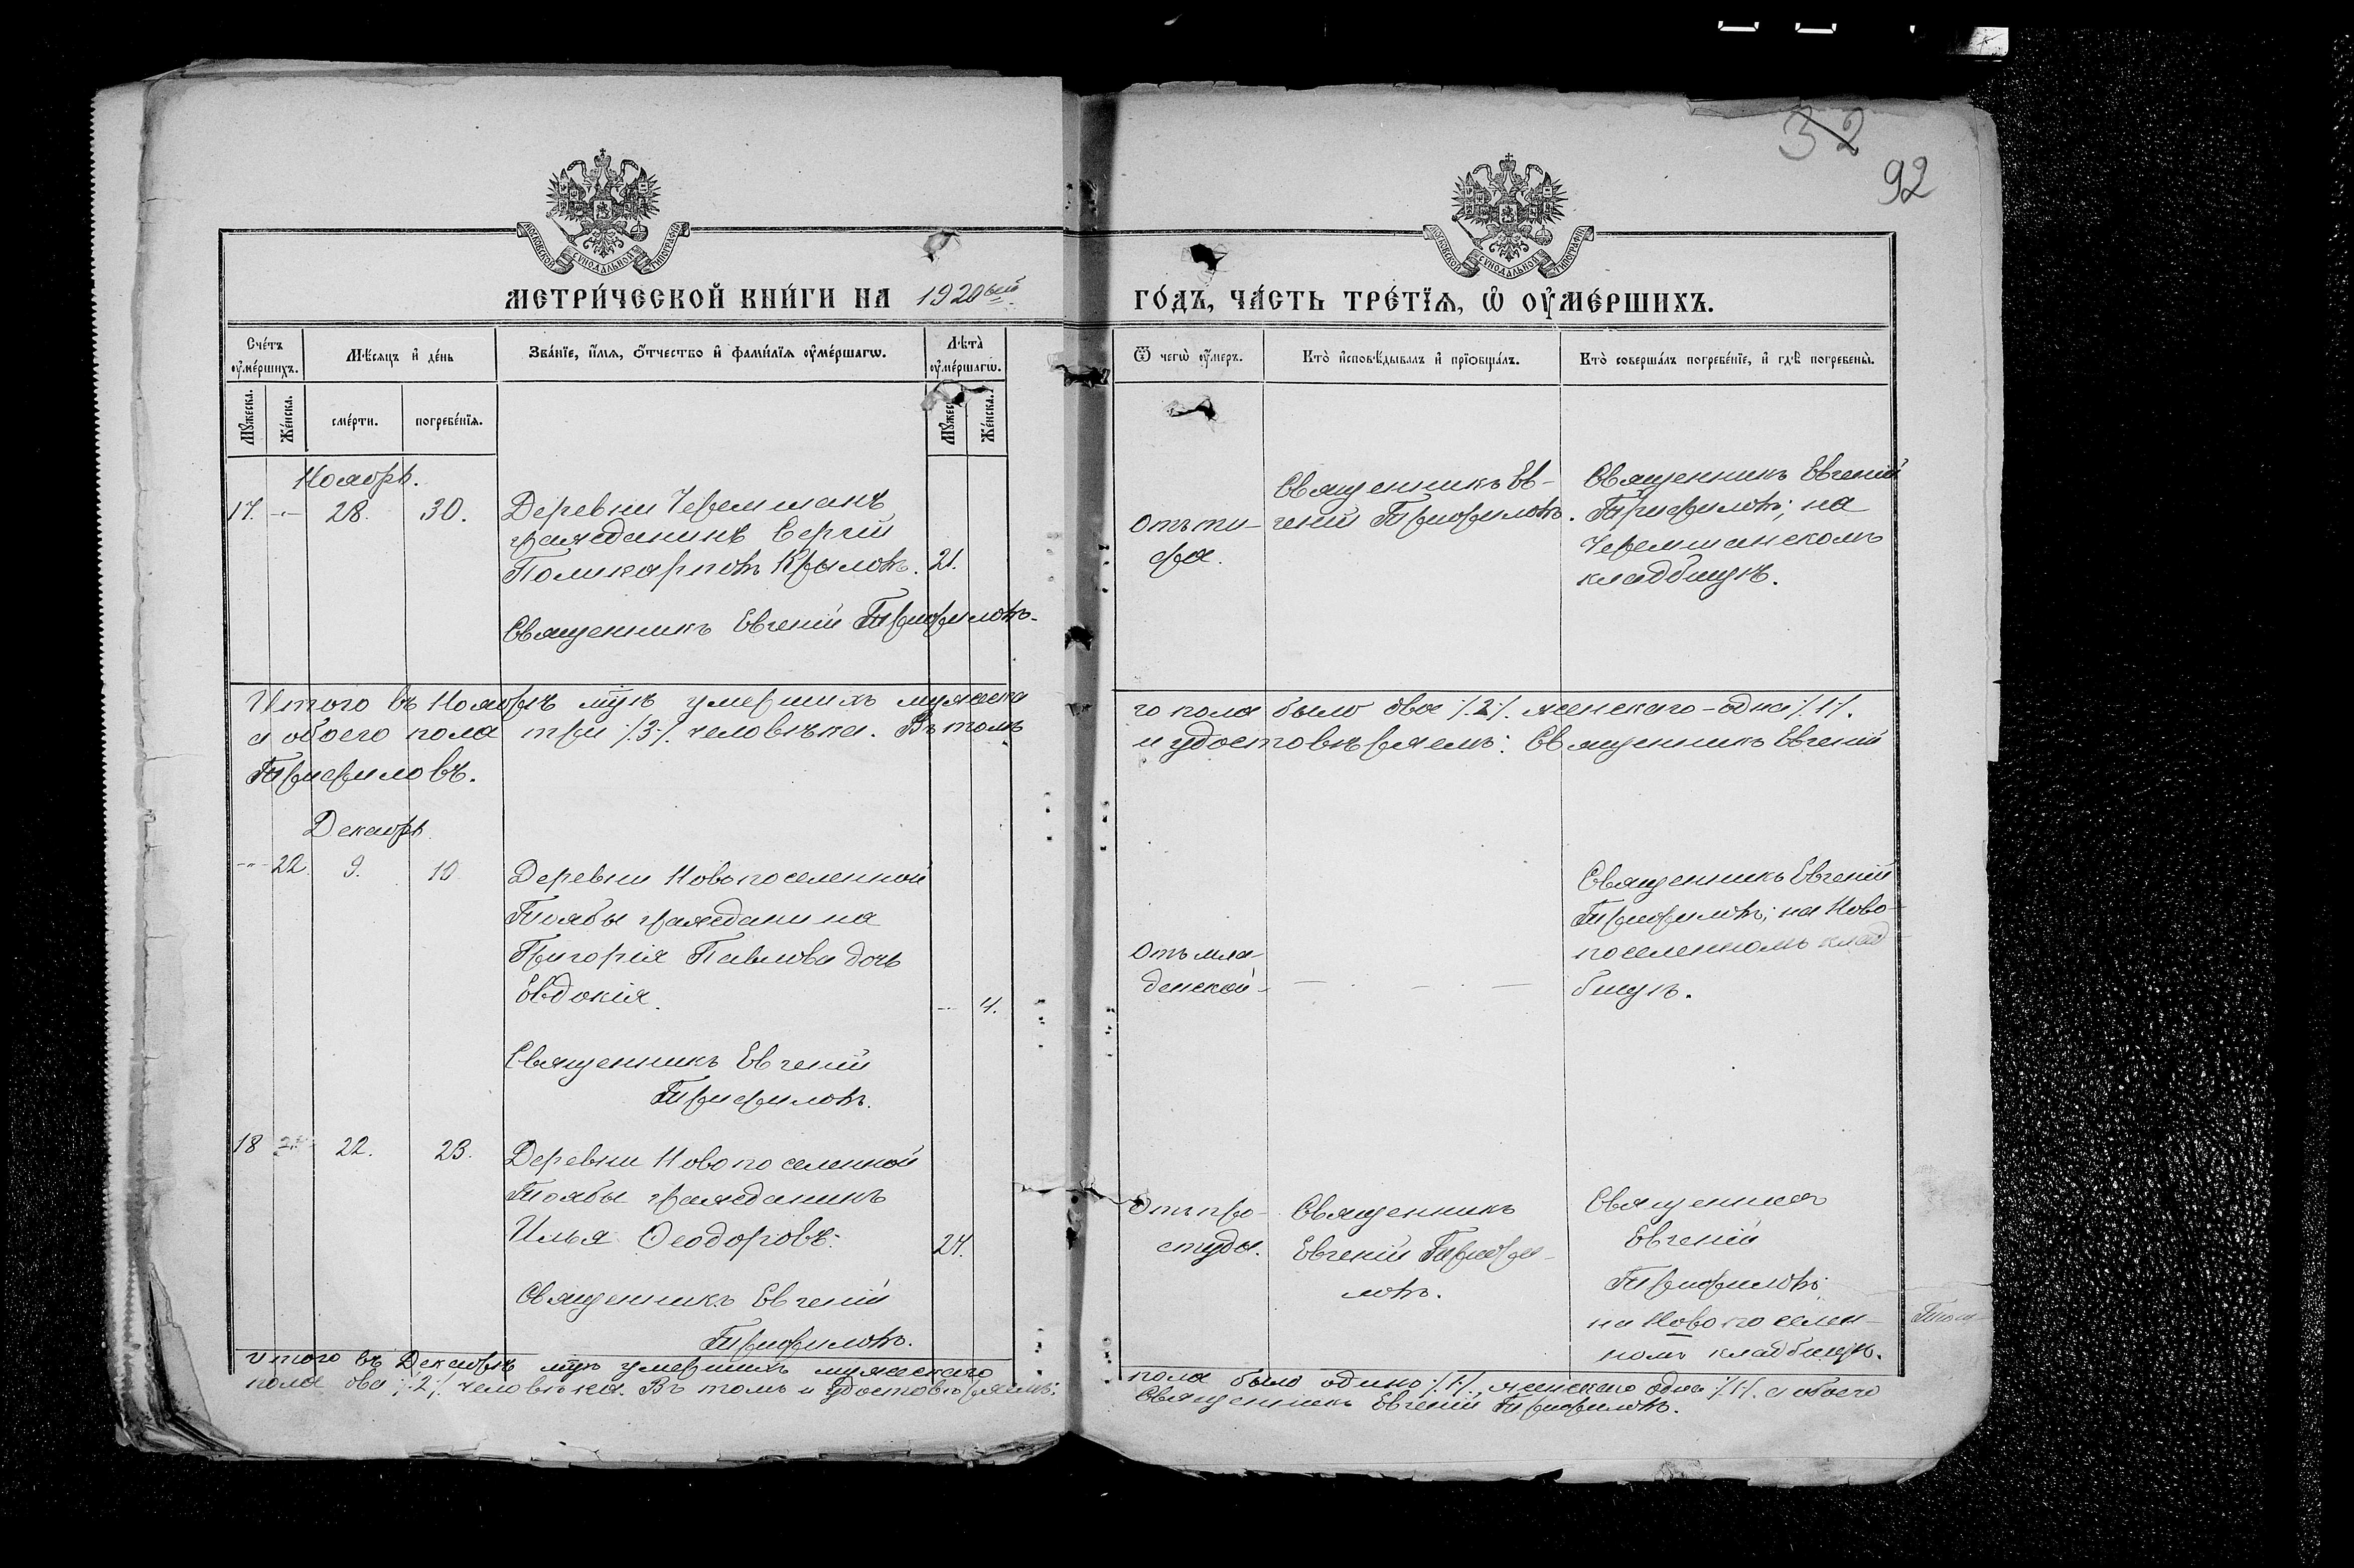 32
92
МОСКОВСКОЙ СѴНОДАЛЬНОЙ ТИПОГРАФІИ
МОСКОВСКОЙ СѴНОДАЛЬНОЙ ТИПОГРАФІИ
МЕТРИ́ЧЕСКОЙ КНИ́ГИ НА 1920ый
ГО́ДЪ, ЧА́СТЬ ТРЕ́ТЇѦ, Ѽ ОУ҆МЕ́РШИХЪ.
Сче́тъ оу҆ме́ршихъ.
Мѣ́сяцъ и҆ де́нь
Зва́нїе, и҆́мѧ, ѻ҆́тчество и҆ фами́лїѧ оу҆ме́ршагѡ.
Лѣ́та̀ оу҆ме́ршагѡ.
Ѿ чегѡ̀ оу҆́меръ.
Кто̀ и҆сповѣ́дывалъ и҆ прїѡбща́лъ.
Кто̀ соверша́лъ погребе́нїе, и҆ гдѣ̀ погребены̀.
Мꙋ́жеска.
Же́нска.
сме́рти.
погребе́нїѧ.
Мꙋ́жеска.
Же́нска.
Ноябрь.
17. -"- 28. 30.
Деревни Черемшанъ
гражданинъ Сергій
Поликарповъ Крыловъ. 21.
Священникъ Евгеній Трифиловъ.
Отъ ти-
фа.
Священникъ Ев-
геній Трифиловъ.
Священникъ Евгеній
Трифиловъ; на
Черемшанскомъ
кладбищѣ.
Итого въ Ноябрѣ мцѣ умершихъ мужеска
го пола было двое /.2/. женскаго - одна /.1/.
а обоего пола три /.3/. человѣка. Въ томъ
и удостовѣряемъ: Священникъ Евгеній
Трифиловъ.
Декабрь
-"- 22. 9. 10
Деревни Новопоселенной
Тоябы гражданина
Григорія Павлова дочь
Евдокія. -"- 4.
Священникъ Евгеній
Трифиловъ.
Отъ мла-
денской -
Священникъ Евгеній
Трифиловъ; на Ново-
поселенномъ клад-
бищѣ.
18 22. 23.
Деревни Новопоселенной
Тоябы гражданинъ
Илья Ѳеодоровъ. 24.
Священникъ Евгеній
Трифиловъ.
Отъ про-
студы.
Священникъ
Евгеній Трифи-
ловъ.
Священникъ
Евгеній
Трифиловъ;
на Новопоселен-
номъ кладбищѣ.
Итого въ Декабрѣ мцѣ умершихъ мужескаго
пола было одинъ /.1/., женскаго одна /.1/. а обоего
пола два /.2/. человѣка. Въ томъ и удостовѣряемъ:
Священникъ Евгеній Трифиловъ.